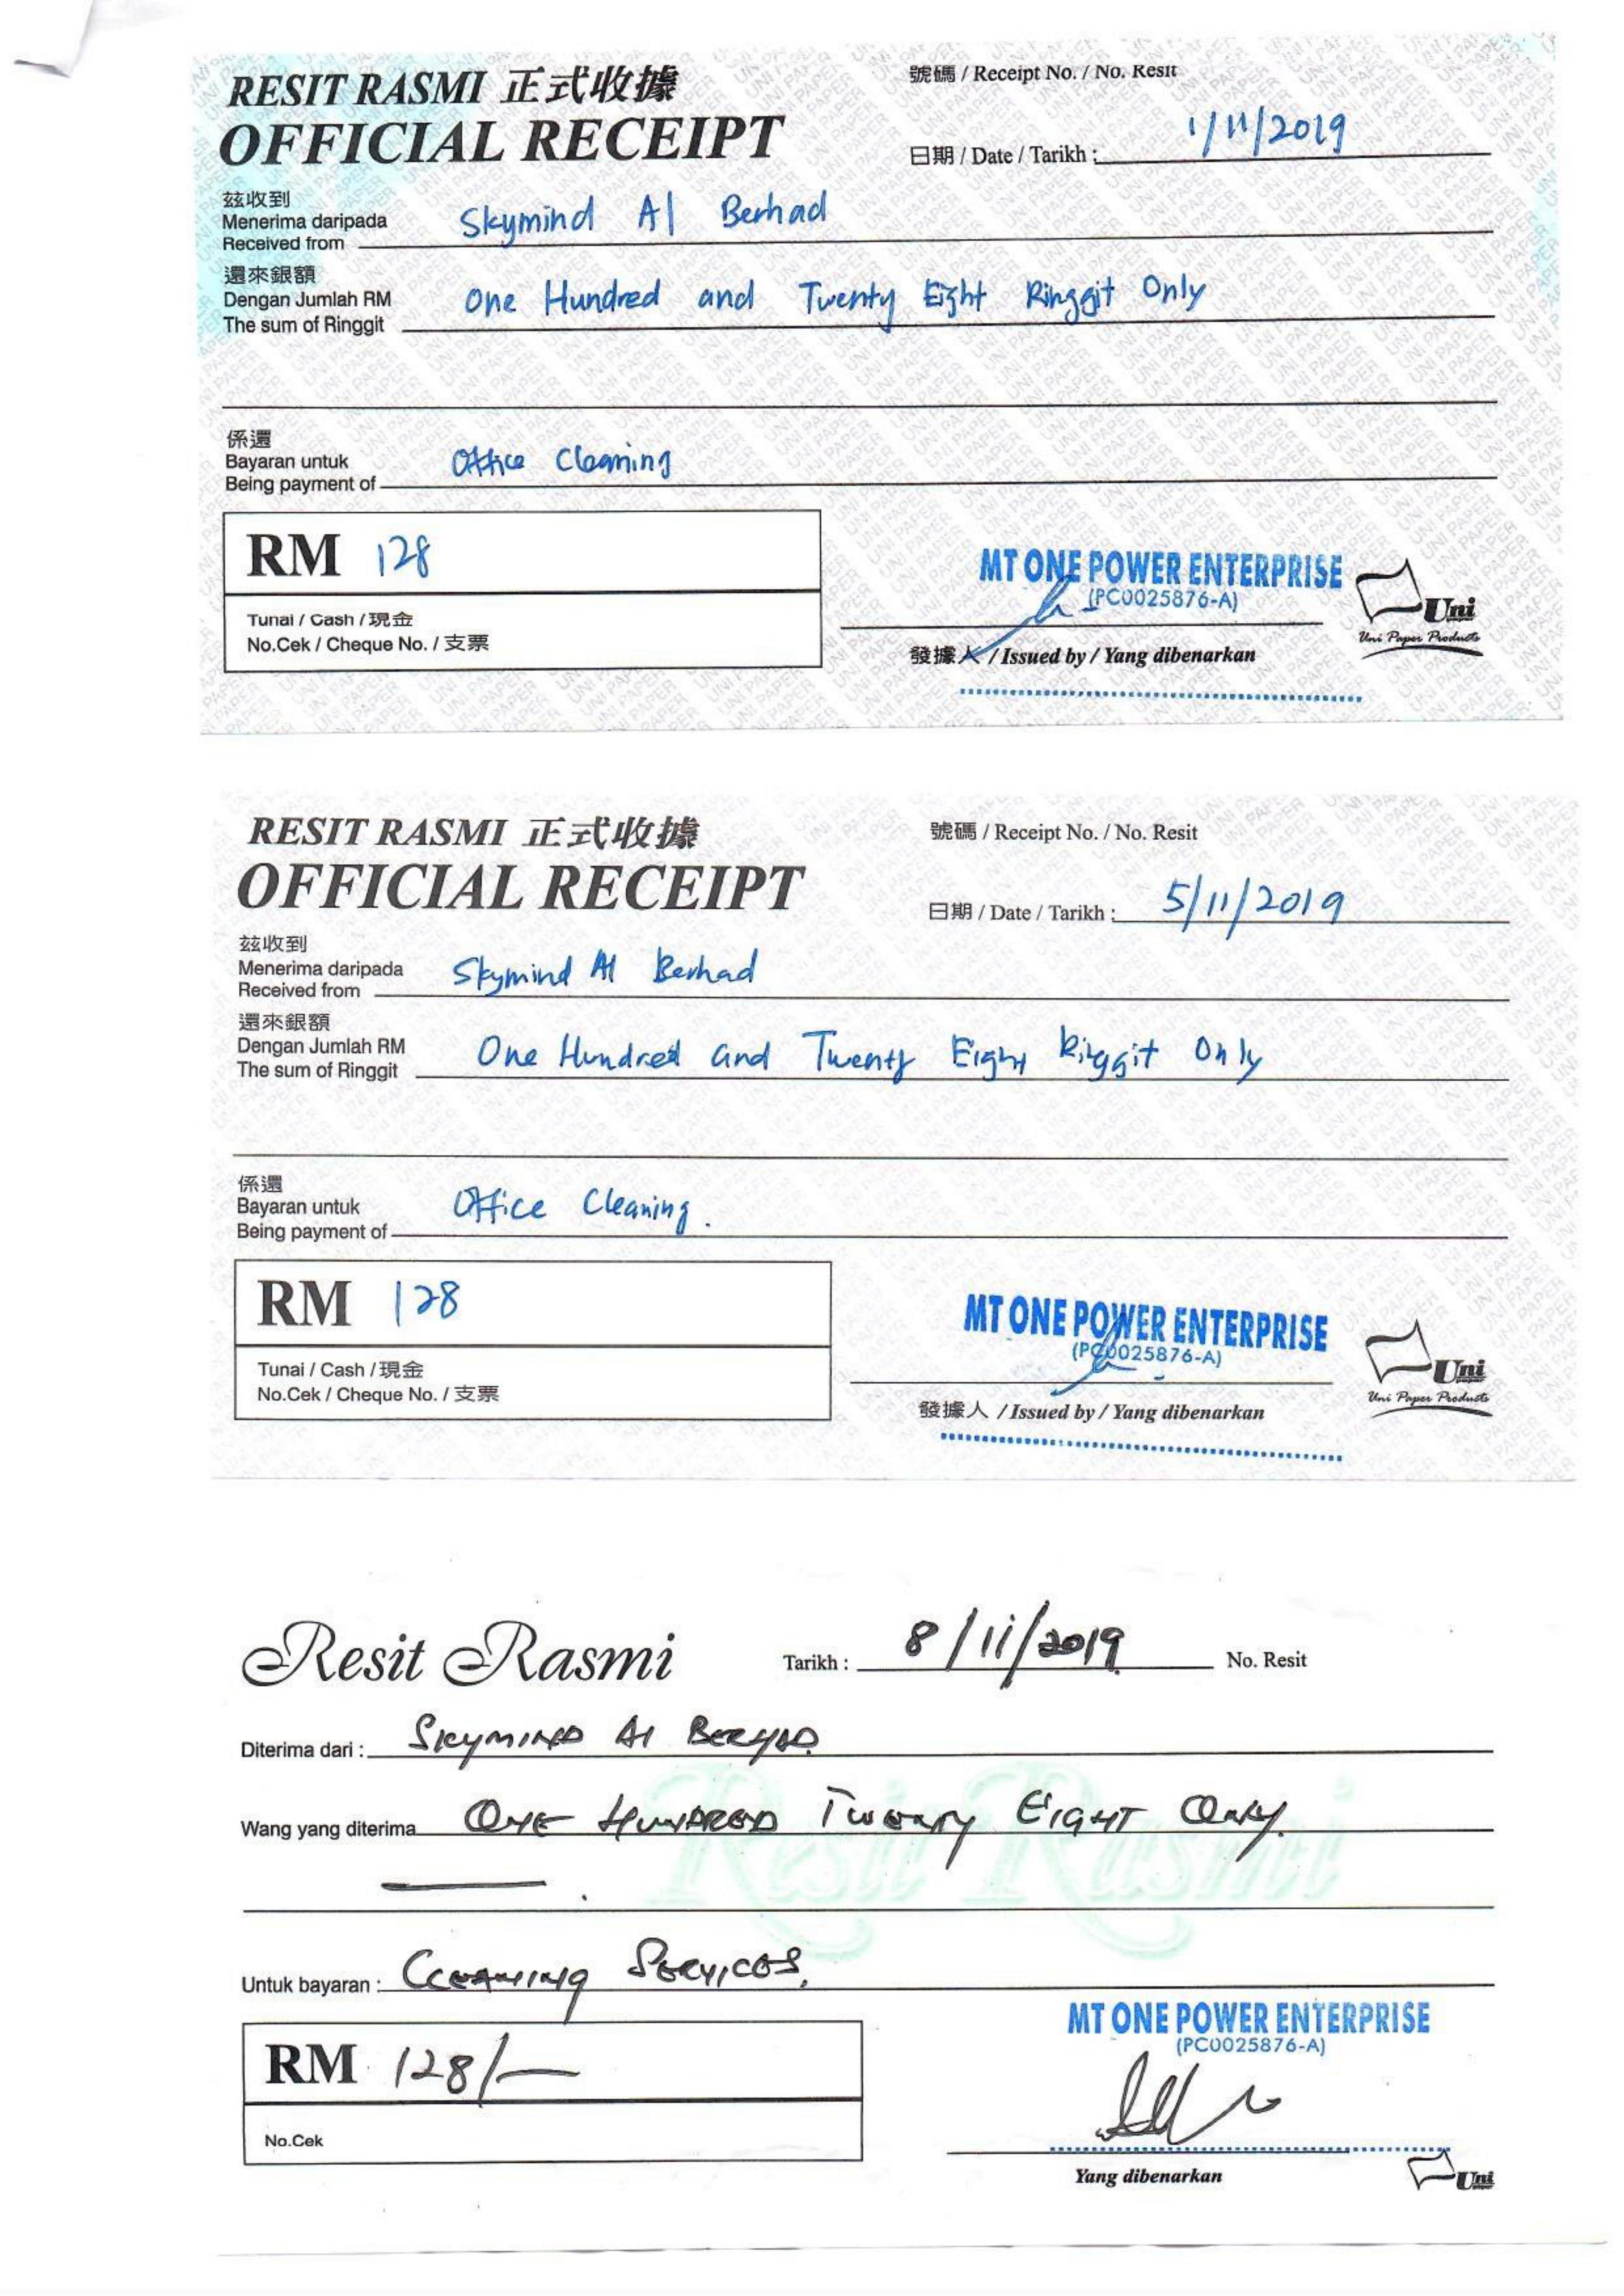 RESIT RASMI 正式收據
OFFICIAL RECEIPT
號碼 / Receipt No. / No. Resit
日期 / Date / Tarikh : 1/11/2019
茲收到
Menerima daripada
Received from Skymind AI Berhad
還來銀額
Dengan Jumlah RM
The sum of Ringgit One Hundred and Twenty Eight Ringgit Only
係還
Bayaran untuk
Being payment of Office Cleaning
RM 128
Tunai / Cash / 現金
No.Cek / Cheque No. / 支票
MT ONE POWER ENTERPRISE
(PC0025876-A)
發據人 / Issued by / Yang dibenarkan
Uni
Uni Paper Products
RESIT RASMI 正式收據
OFFICIAL RECEIPT
號碼 / Receipt No. / No. Resit
日期 / Date / Tarikh : 5/11/2019
茲收到
Menerima daripada
Received from Skymind AI Berhad
還來銀額
Dengan Jumlah RM
The sum of Ringgit One Hundred and Twenty Eight Ringgit Only
係還
Bayaran untuk
Being payment of Office Cleaning.
RM 128
Tunai / Cash / 現金
No.Cek / Cheque No. / 支票
MT ONE POWER ENTERPRISE
(PC0025876-A)
發據人 / Issued by / Yang dibenarkan
Uni
Uni Paper Products
Resit Rasmi
Tarikh : 8/11/2019 No. Resit
Diterima dari : SKYMIND AI BERHAD
Wang yang diterima ONE HUNDRED TWENTY EIGHT ONLY
Resit Rasmi
Untuk bayaran : CLEANING SERVICES
RM 128/-
No.Cek
MT ONE POWER ENTERPRISE
(PC0025876-A)
Yang dibenarkan
Uni